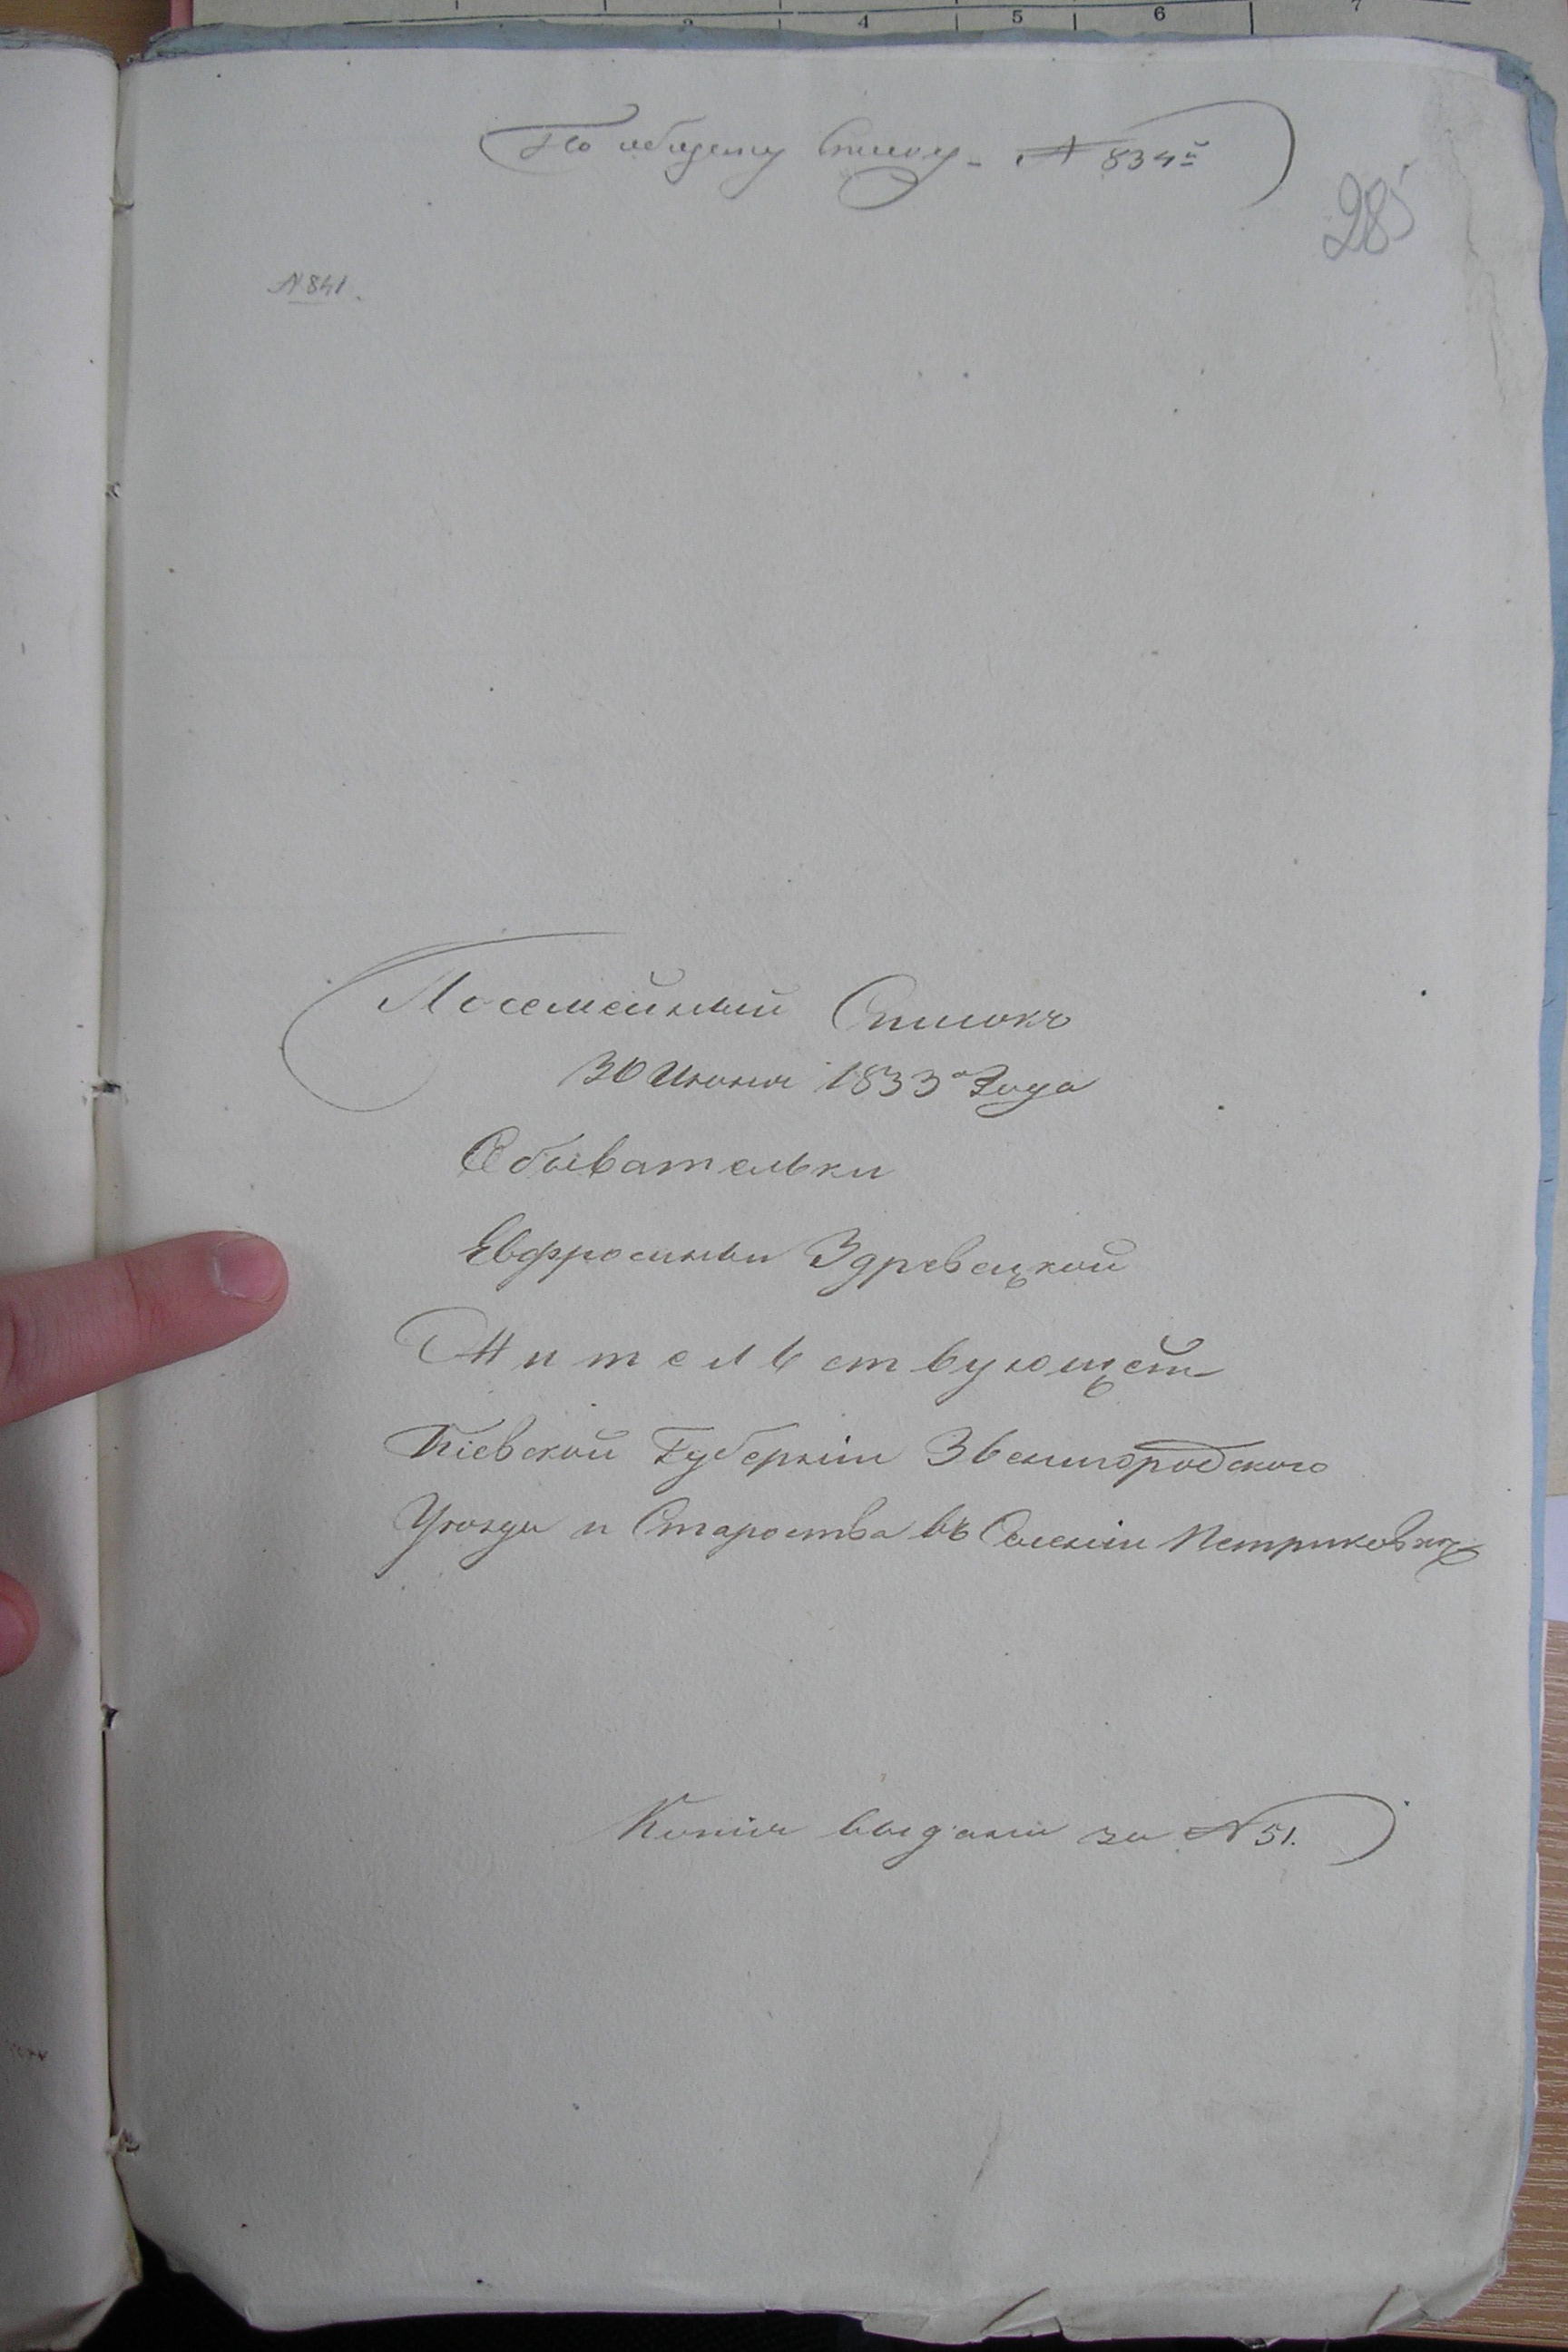 3 4 5 6 7
По общему Списку - № 834й
285
№ 841.
Посемейный Списокъ
30 Июня 1833го Года
Обывательки
Евфросиньи Здревецкой
Жительствующей
Кіевской Губерніи Звенигородского
Уѣзда и Староства въ Селеніи Петриковкѣ
Копія выдана за № 51.